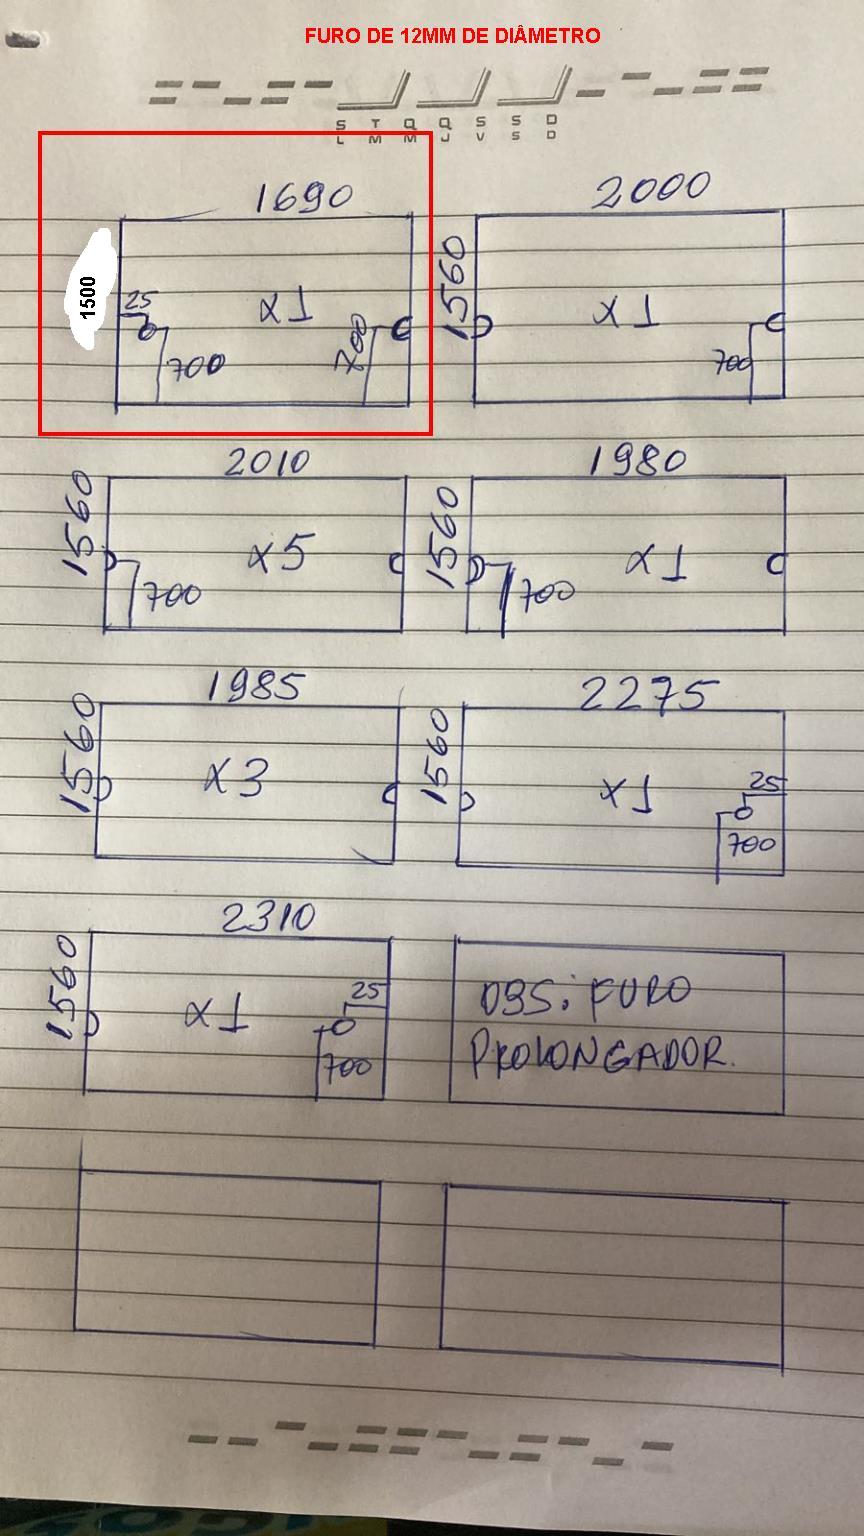 FURO DE 12MM DE DIÂMETRO
S T Q Q S S D
L M M J V S D
1690
1500
25
x1
700
700
2000
1560
x1
700
2010
1560
x5
700
1980
1560
x1
700
1985
1560
x3
2275
1560
x1
25
700
2310
1560
x1
25
700
OBS: FURO
PROLONGADOR.